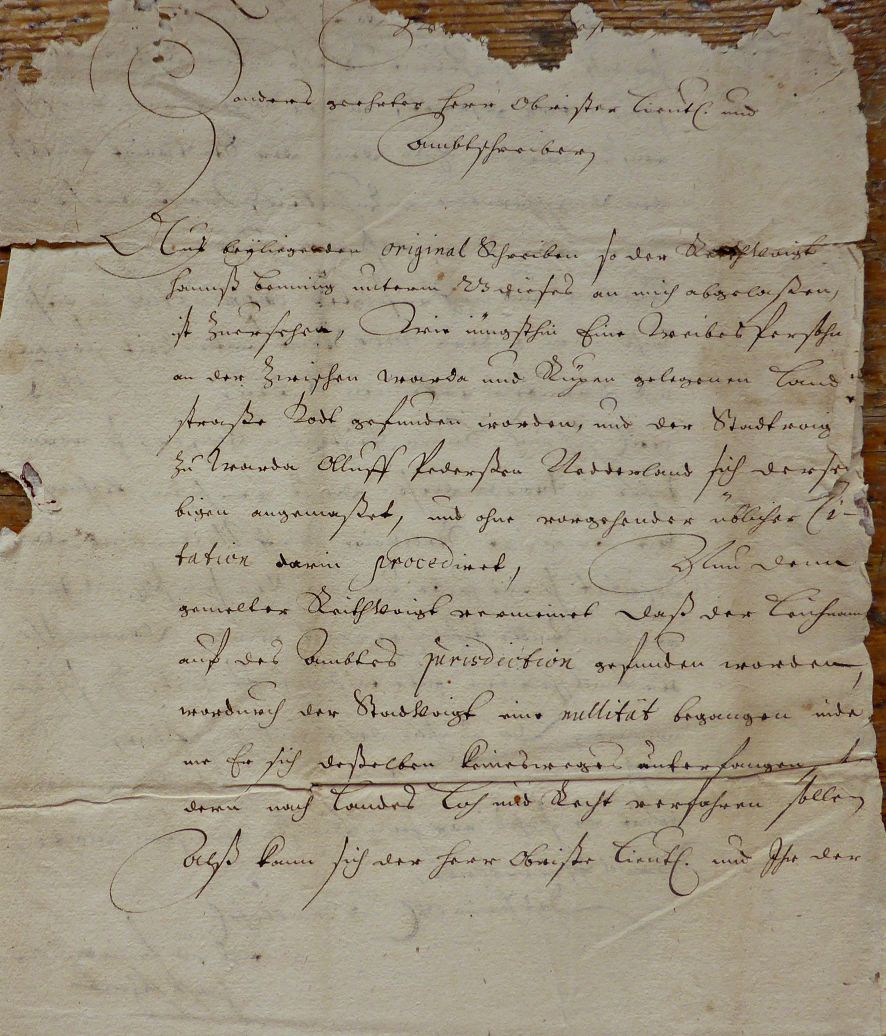 Sonders geehrter Herr Obrister Lieut. und
Ambtschreiber,
Auß beyliegenden original Schreiben so der Reithvoigt
Hannß Benning unterm 23 dieses an mich abgelaßen,
ist zuersehen, Wie jüngsthin Eine Weibes Persohn
an der zwischen Warda und Rypen gelegenen Land
straße Todt gefunden worden, und der Stadtvoig
zu Warda Olluff Pederßen Nedderland sich dersel
bigen angemaßet, und ohne vorgehender üblicher Ci-
tation darin procediret, Wann dann
gemelter Reithvoigt vermeinet daß der Leichnam
auf des Ambtes jurisdiction gefunden worden,
wordurch der Stadtvoigt eine nullität begangen inde,
me Er sich deßelben keinesweges unterfangen,
dern nach Landes Loch und Recht verfahren sollen,
Alß kann sich der Herr Obriste Lieut. und Ihr der